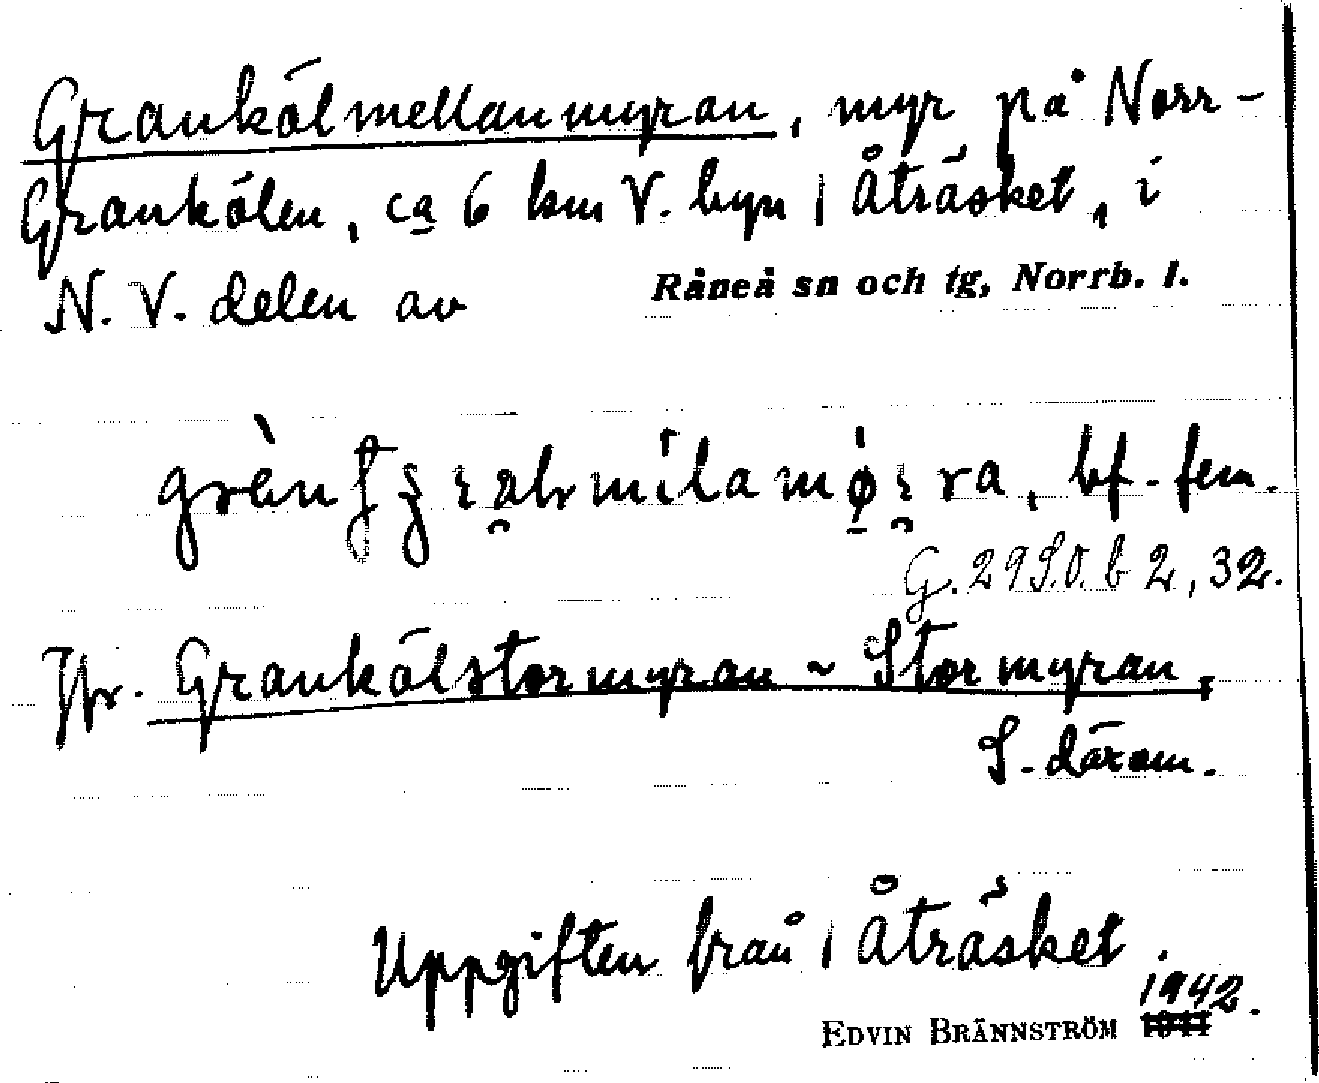 Grankölmellanmyran, myr på Norr-
Grankölen, ca 6 km V. byn | Åträsket, i
N. V. delen av Råneå sn och tg, Norrb. l.
bf. fem.
G. 29 S.O. b 2, 32.
Jfr. Grankölstormyran ~ Stormyran,
S. därom.
Uppgiften från | Åträsket.
1942.
EDVIN BRÄNNSTRÖM 1941